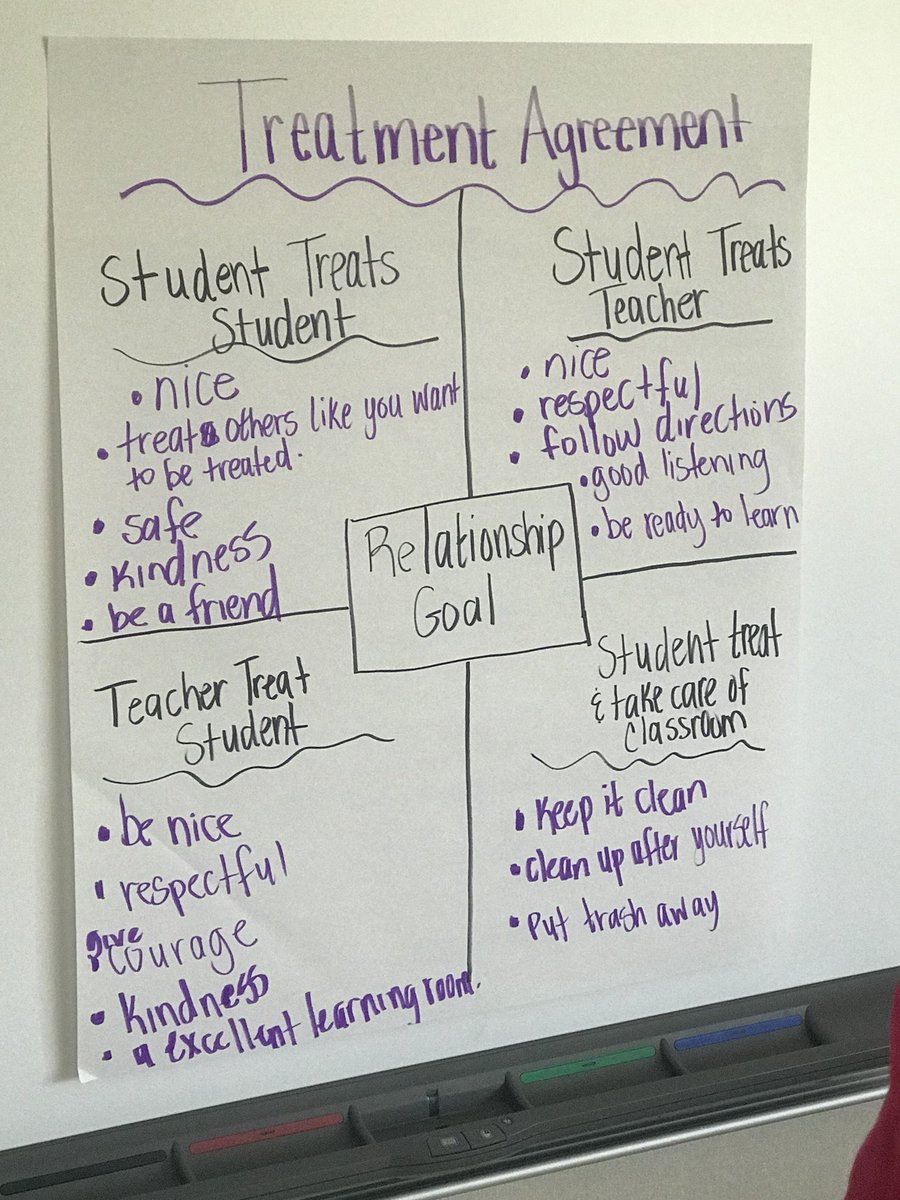 Treatment Agreement
Student Treats
Student
• nice
• treat others like you want
to be treated.
• safe
• kindness
• be a friend
Student Treats
Teacher
• nice
• respectful
• follow directions
• good listening
• be ready to learn
Relationship
Goal
Teacher Treat
Student
• be nice
• respectful
• give courage
• kindness
• a excellent learning room.
Student treat
& take care of
classroom
• Keep it clean
• clean up after yourself
• Put trash away